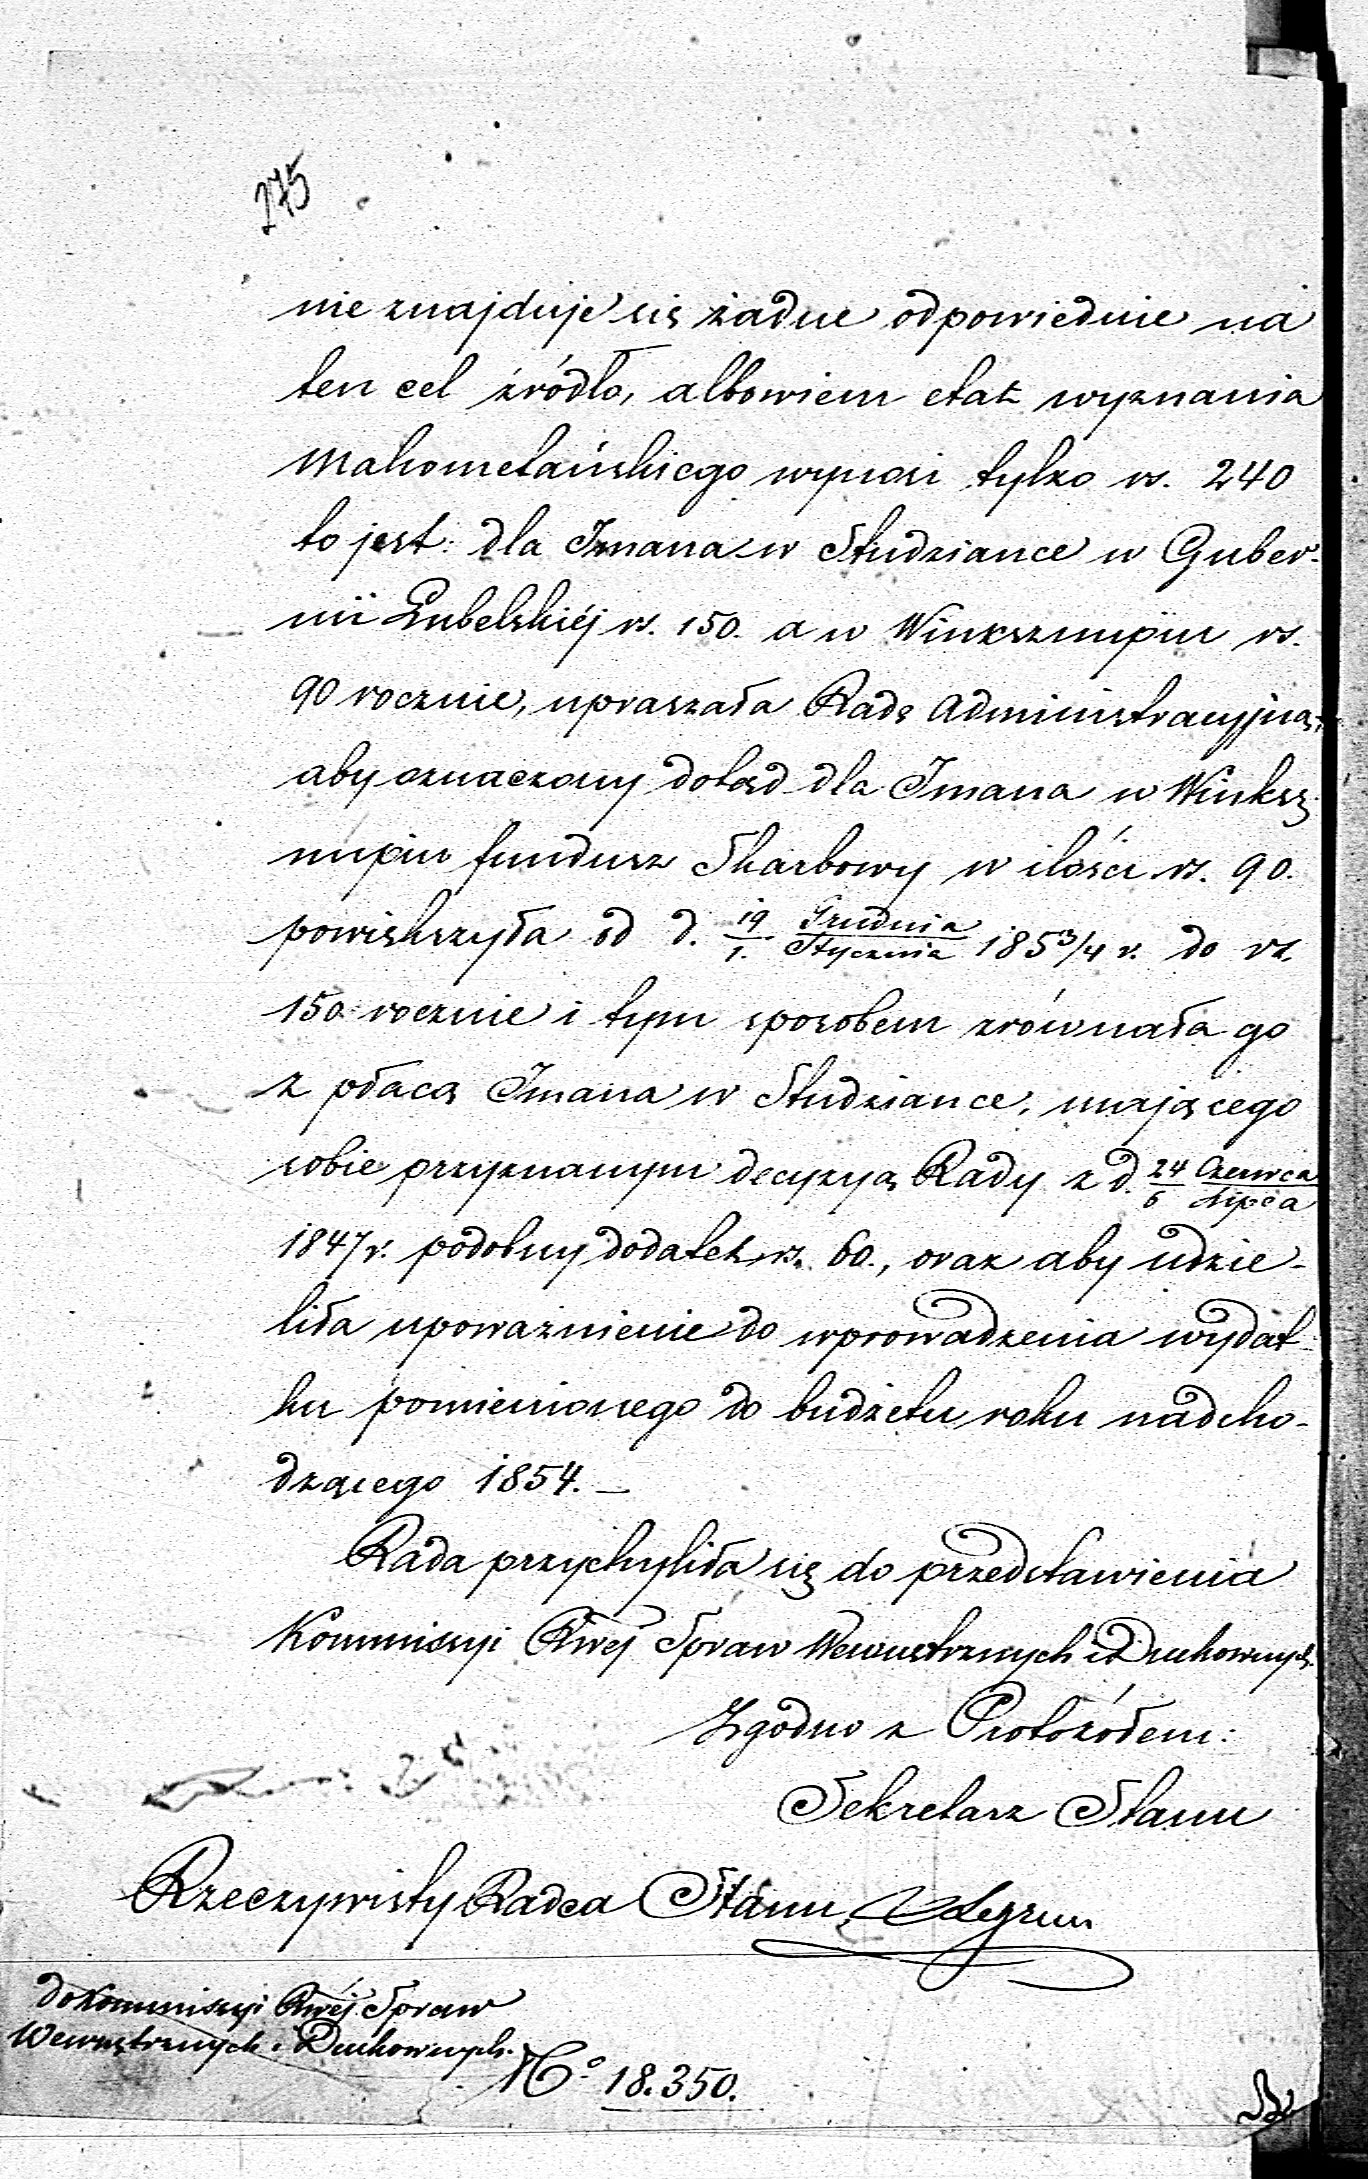 275
nie znajduje się żadne odpowiednie na
ten cel źródło, albowiem etat wyznania
Mahometańskiego wynosi tylko rs. 240
to jest: dla Imana w Studziance w Guber-
nii Lubelskiéj rs. 150. a w Winkszunpiu rs.
90 rocznie, upraszała Radę Administracyjną,
aby oznaczony dotąd dla Imana w Winksz-
nupiu fundusz Skarbowy w ilości rs. 90.
powiększyła od d. 19/1. Grudnia/Stycznia 185 3/4 r. do rs.
150 rocznie i tym sposobem zrównała go
z płacą Imana w Studziance, mającego
sobie przyznanym decyzyą Rady z d. 24/6 Czerwca/Lipca
1847 r. podobny dodatek rs. 60., oraz aby udzie-
liła upoważnienie do wprowadzenia wydat-
ku pomienionego do budżetu roku nadcho-
dzącego 1854. —
Rada przychyliła się do przedstawienia
Kommissyi Rwéj Spraw Wewnętrznych i Duchownych.
Zgodno z Protokółem:
Sekretarz Stanu
Rzeczywisty Radca Stanu,
do Kommissyi Rwéj Spraw
Wewnętrznych i Duchownych.
No 18.350.